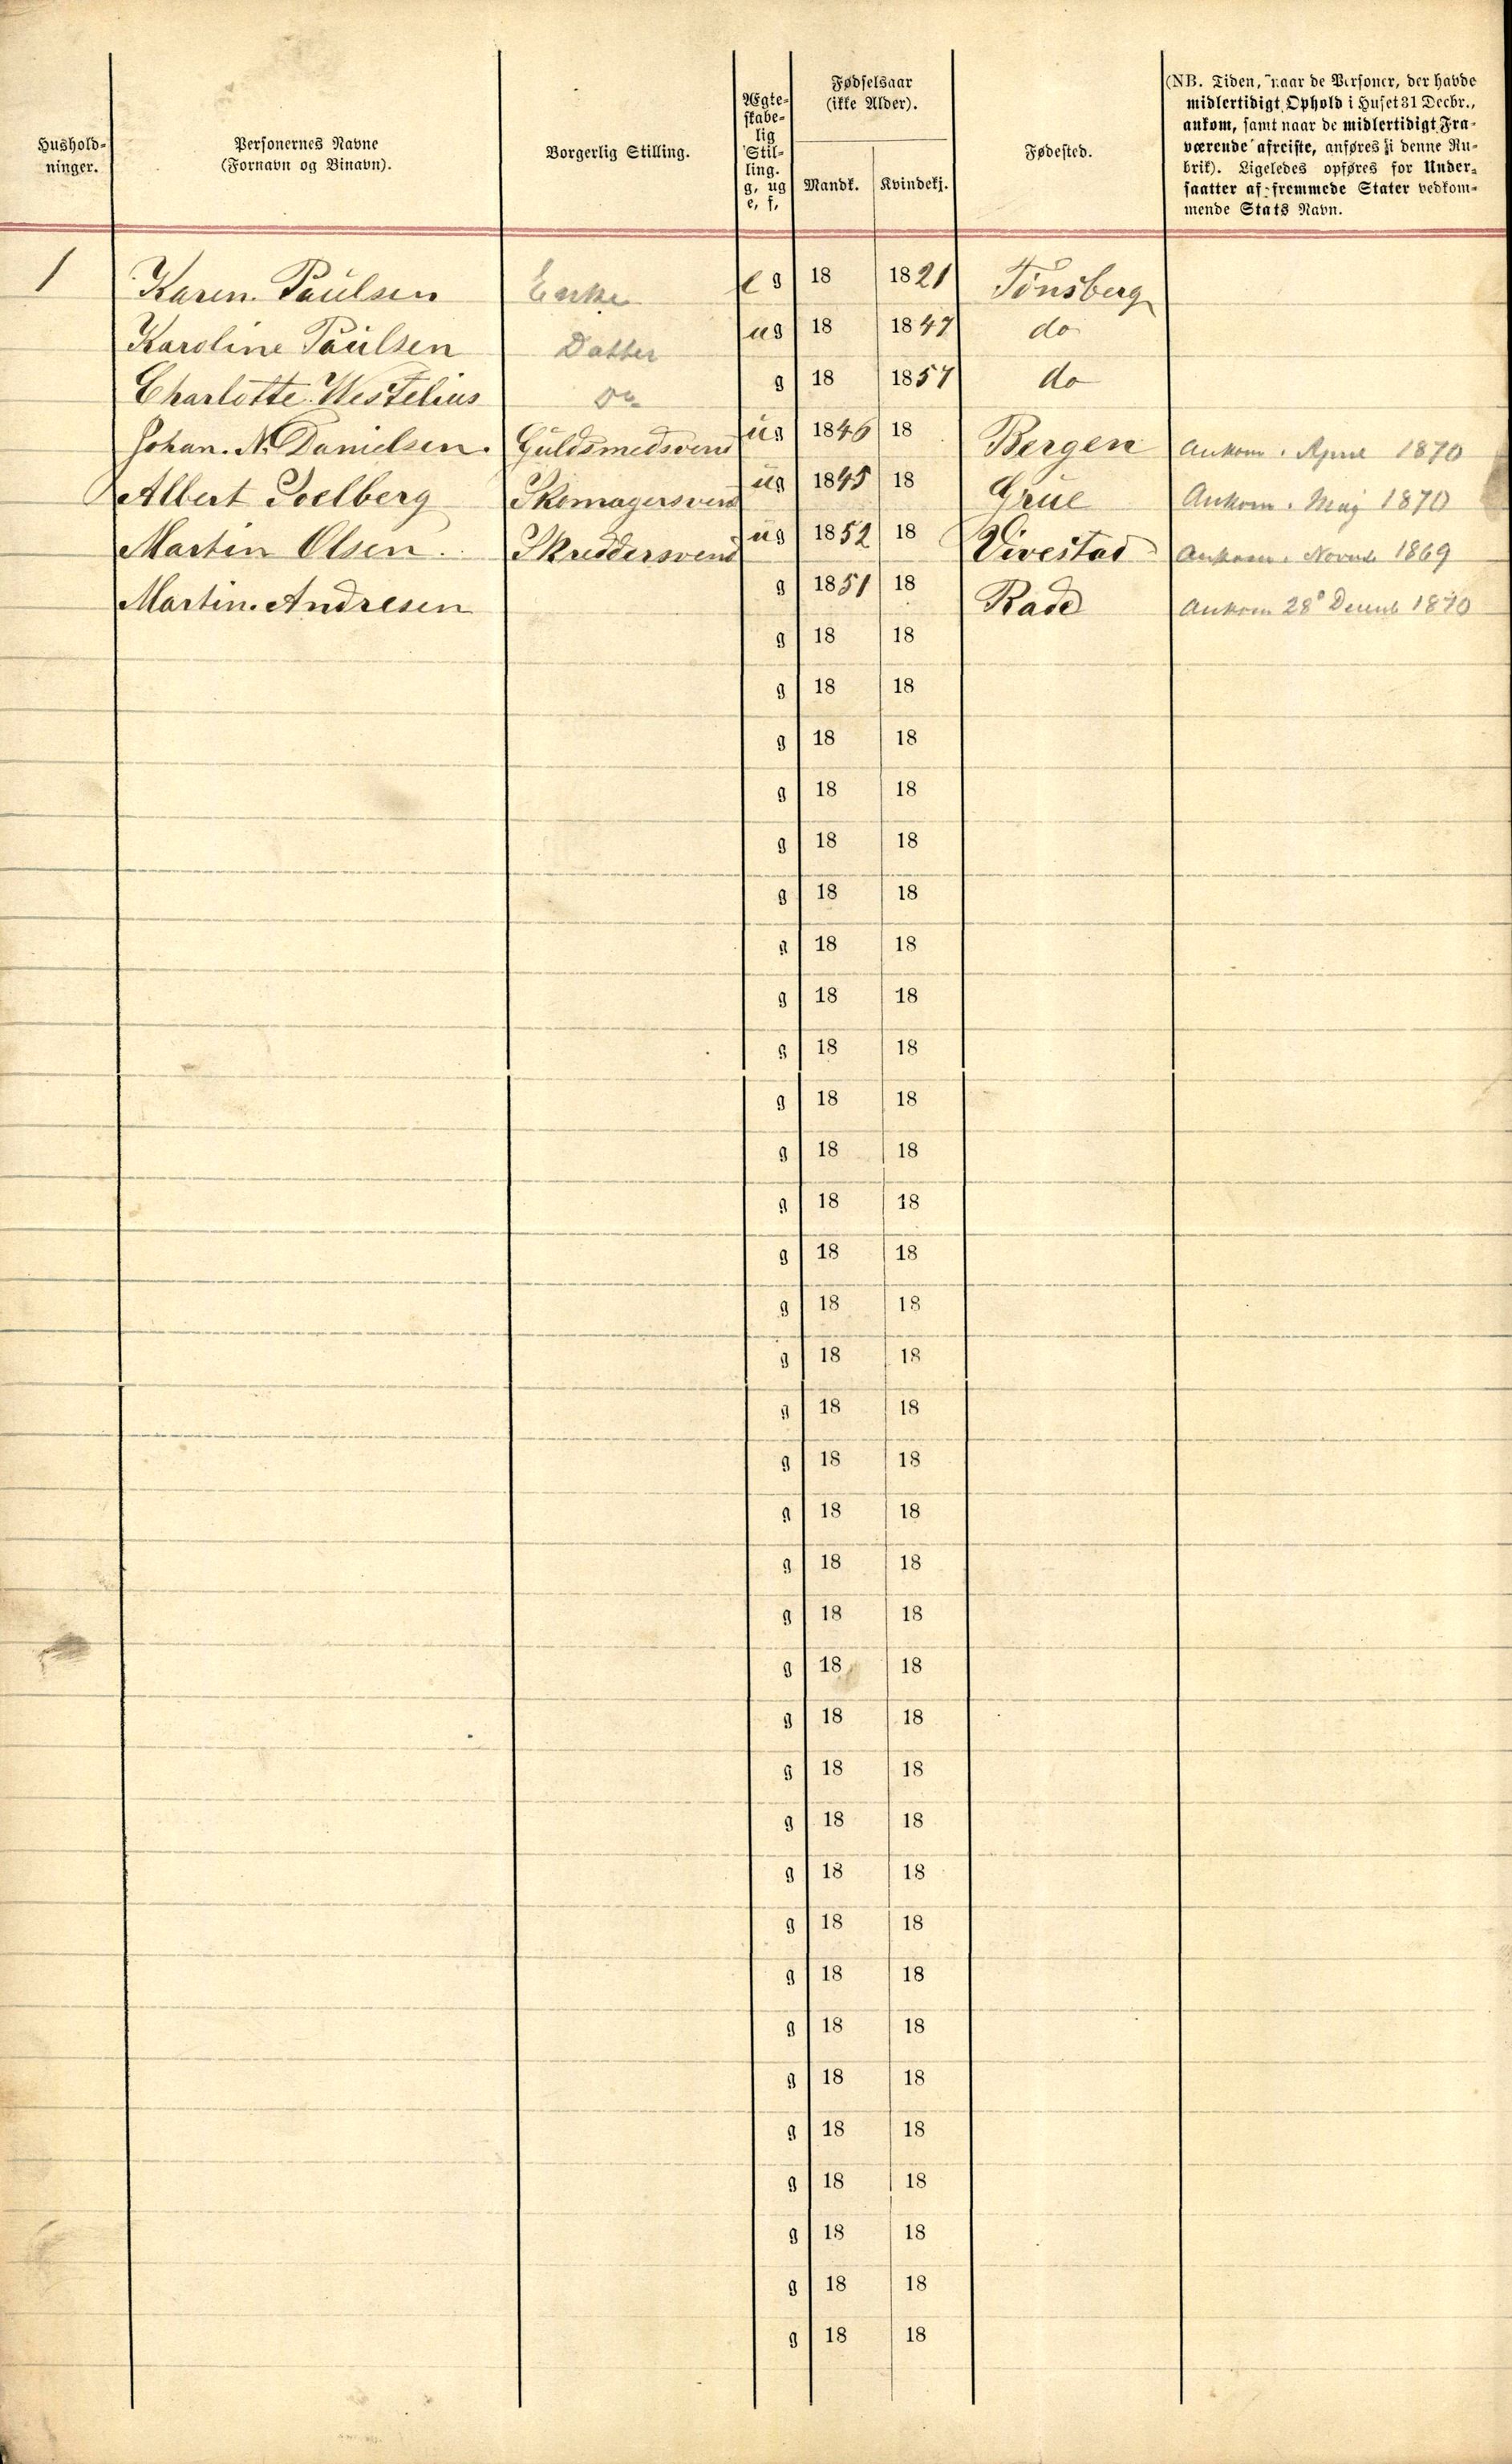 Hushold-
ninger.
Personernes Navne
(Fornavn og Binavn).
Borgerlig Stilling.
Ægte-
skabe-
lig
Stil-
ling.
g, ug
e, f,
Fødselsaar
(ikke Alder).
Mandk.
Kvindekj.
Fødested.
(NB. Tiden, naar de Personer, der havde
midlertidigt Ophold i Huset 31 Decbr.,
ankom, samt naar de midlertidigt Fra-
værende afreiste, anføres i denne Ru-
brik). Ligeledes opføres for Under-
saatter af fremmede Stater vedkom-
mende Stats Navn.
1 Karen Paulsen Enke e g 18 1821 Tönsberg
Karoline Paulsen Datter ug 18 1847 do
Charlotte Westelius Do g 18 1857 do
Johan. N. Danielsen. Guldsmedsvend ug 1846 18 Bergen Ankom. April 1870
Albert Soelberg Skomagersvend ug 1845 18 Grue Ankom. Maj 1870
Martin Olsen. Skreddersvend ug 1852 18 Vivestad Ankom. Novemb 1869
Martin. Andresen g 1851 18 Rade Ankom 28 Decemb 1870
g 18 18
g 18 18
g 18 18
g 18 18
g 18 18
g 18 18
g 18 18
g 18 18
g 18 18
g 18 18
g 18 18
g 18 18
g 18 18
g 18 18
g 18 18
g 18 18
g 18 18
g 18 18
g 18 18
g 18 18
g 18 18
g 18 18
g 18 18
g 18 18
g 18 18
g 18 18
g 18 18
g 18 18
g 18 18
g 18 18
g 18 18
g 18 18
g 18 18
g 18 18